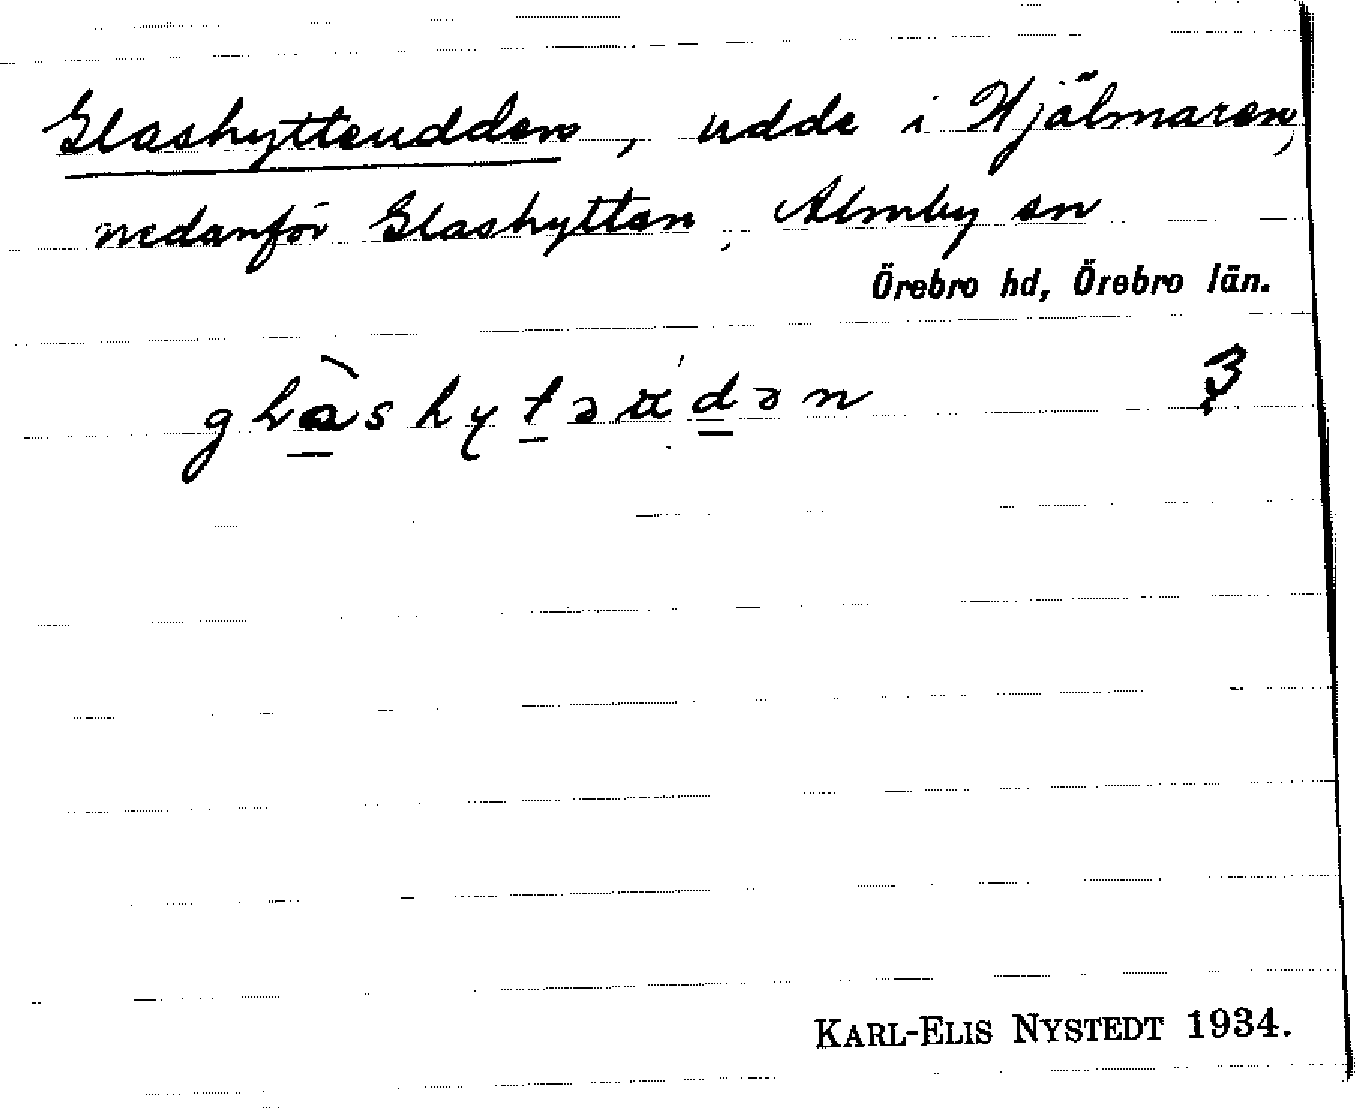 Glashytteudden, udde i Hjälmaren,
nedanför Glashyttan, Almby sn
Örebro hd, Örebro län.
KARL-ELIS NYSTEDT 1934.